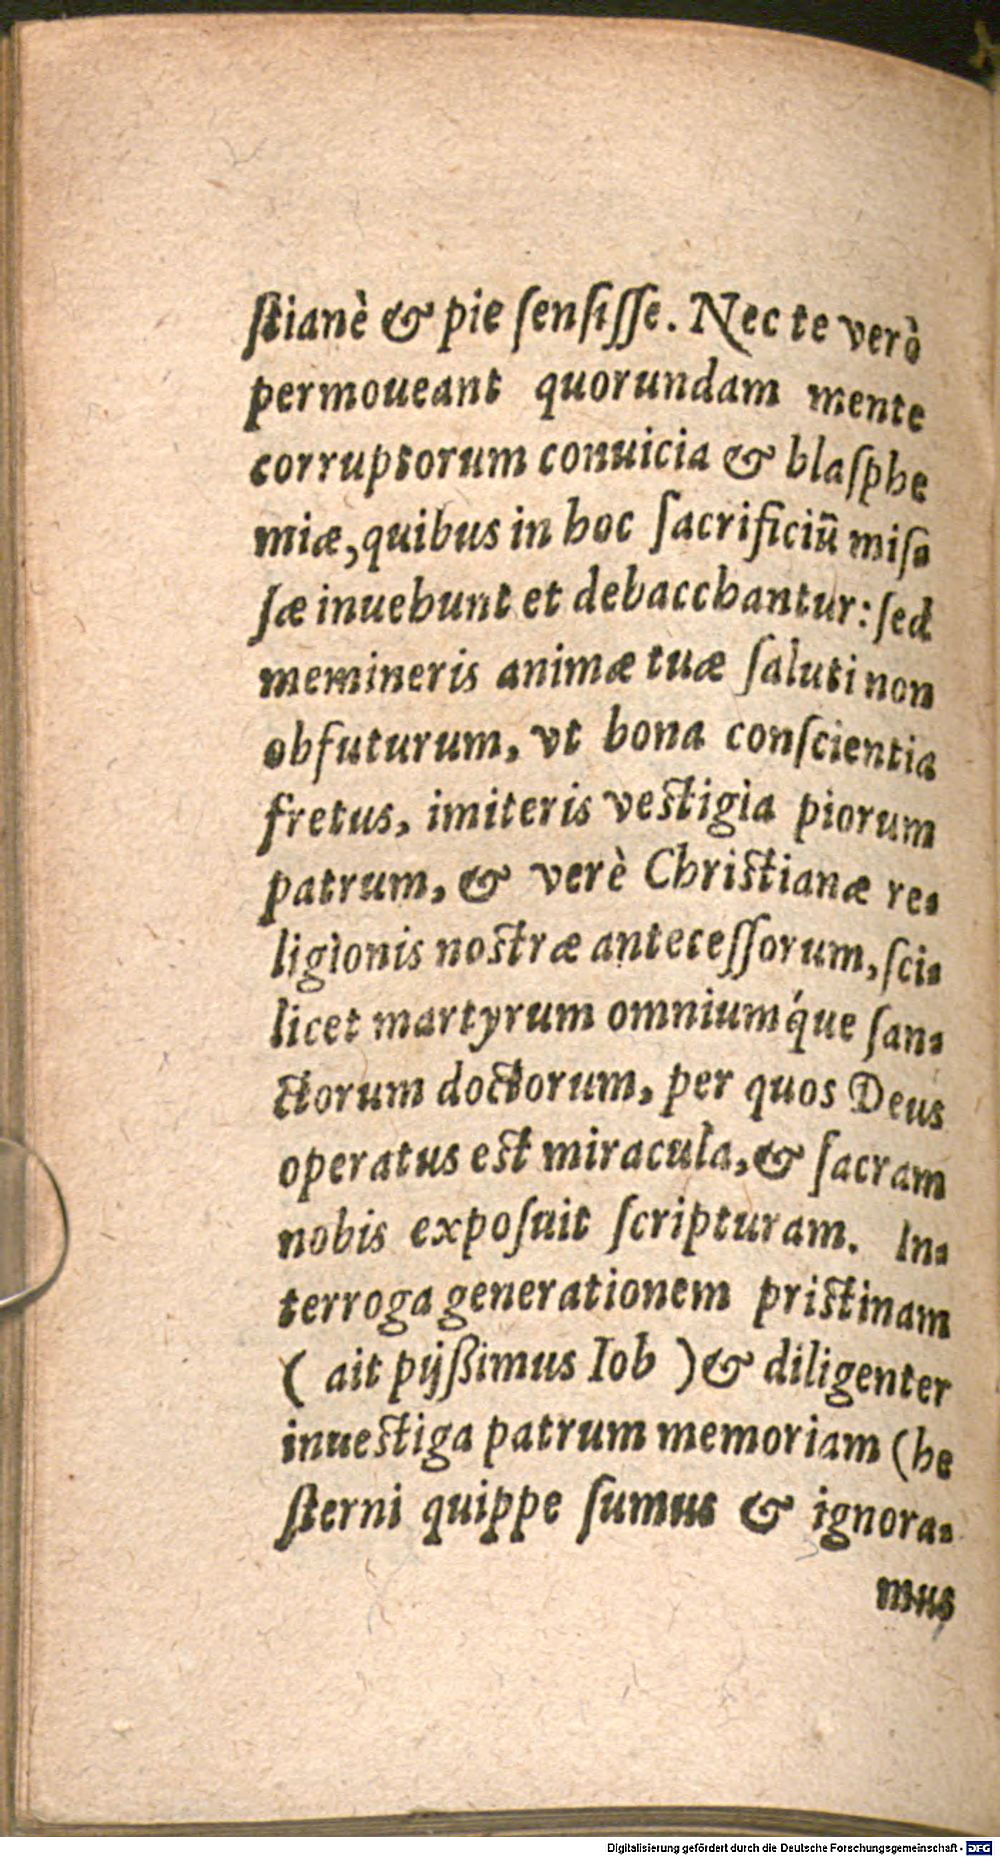 ſtianè & pie ſenſiſſe. Nec te verò
permoueant quorundam mente
corruptorum conuicia & blaſphe
miæ, quibus in hoc ſacrificiũ miſ⸗
ſæ inuehunt et debacchantur: ſed
memineris animæ tuæ ſaluti non
obfuturum, vt bona conſcientia
fretus, imiteris veſtigia piorum
patrum, & verè Chriſtianæ re⸗
ligionis noſtræ anteceſſorum, ſci⸗
licet martyrum omniumq́ue ſan⸗
ctorum doctorum, per quos Deus
operatus eſt miracula, & ſacram
nobis expoſuit ſcripturam. In⸗
terroga generationem priſtinam
( ait pijßimus Iob ) & diligenter
inueſtiga patrum memoriam (he
ſterni quippe ſumus & ignora⸗
mus
Digitalisierung gefördert durch die Deutsche Forschungsgemeinschaft - DFG